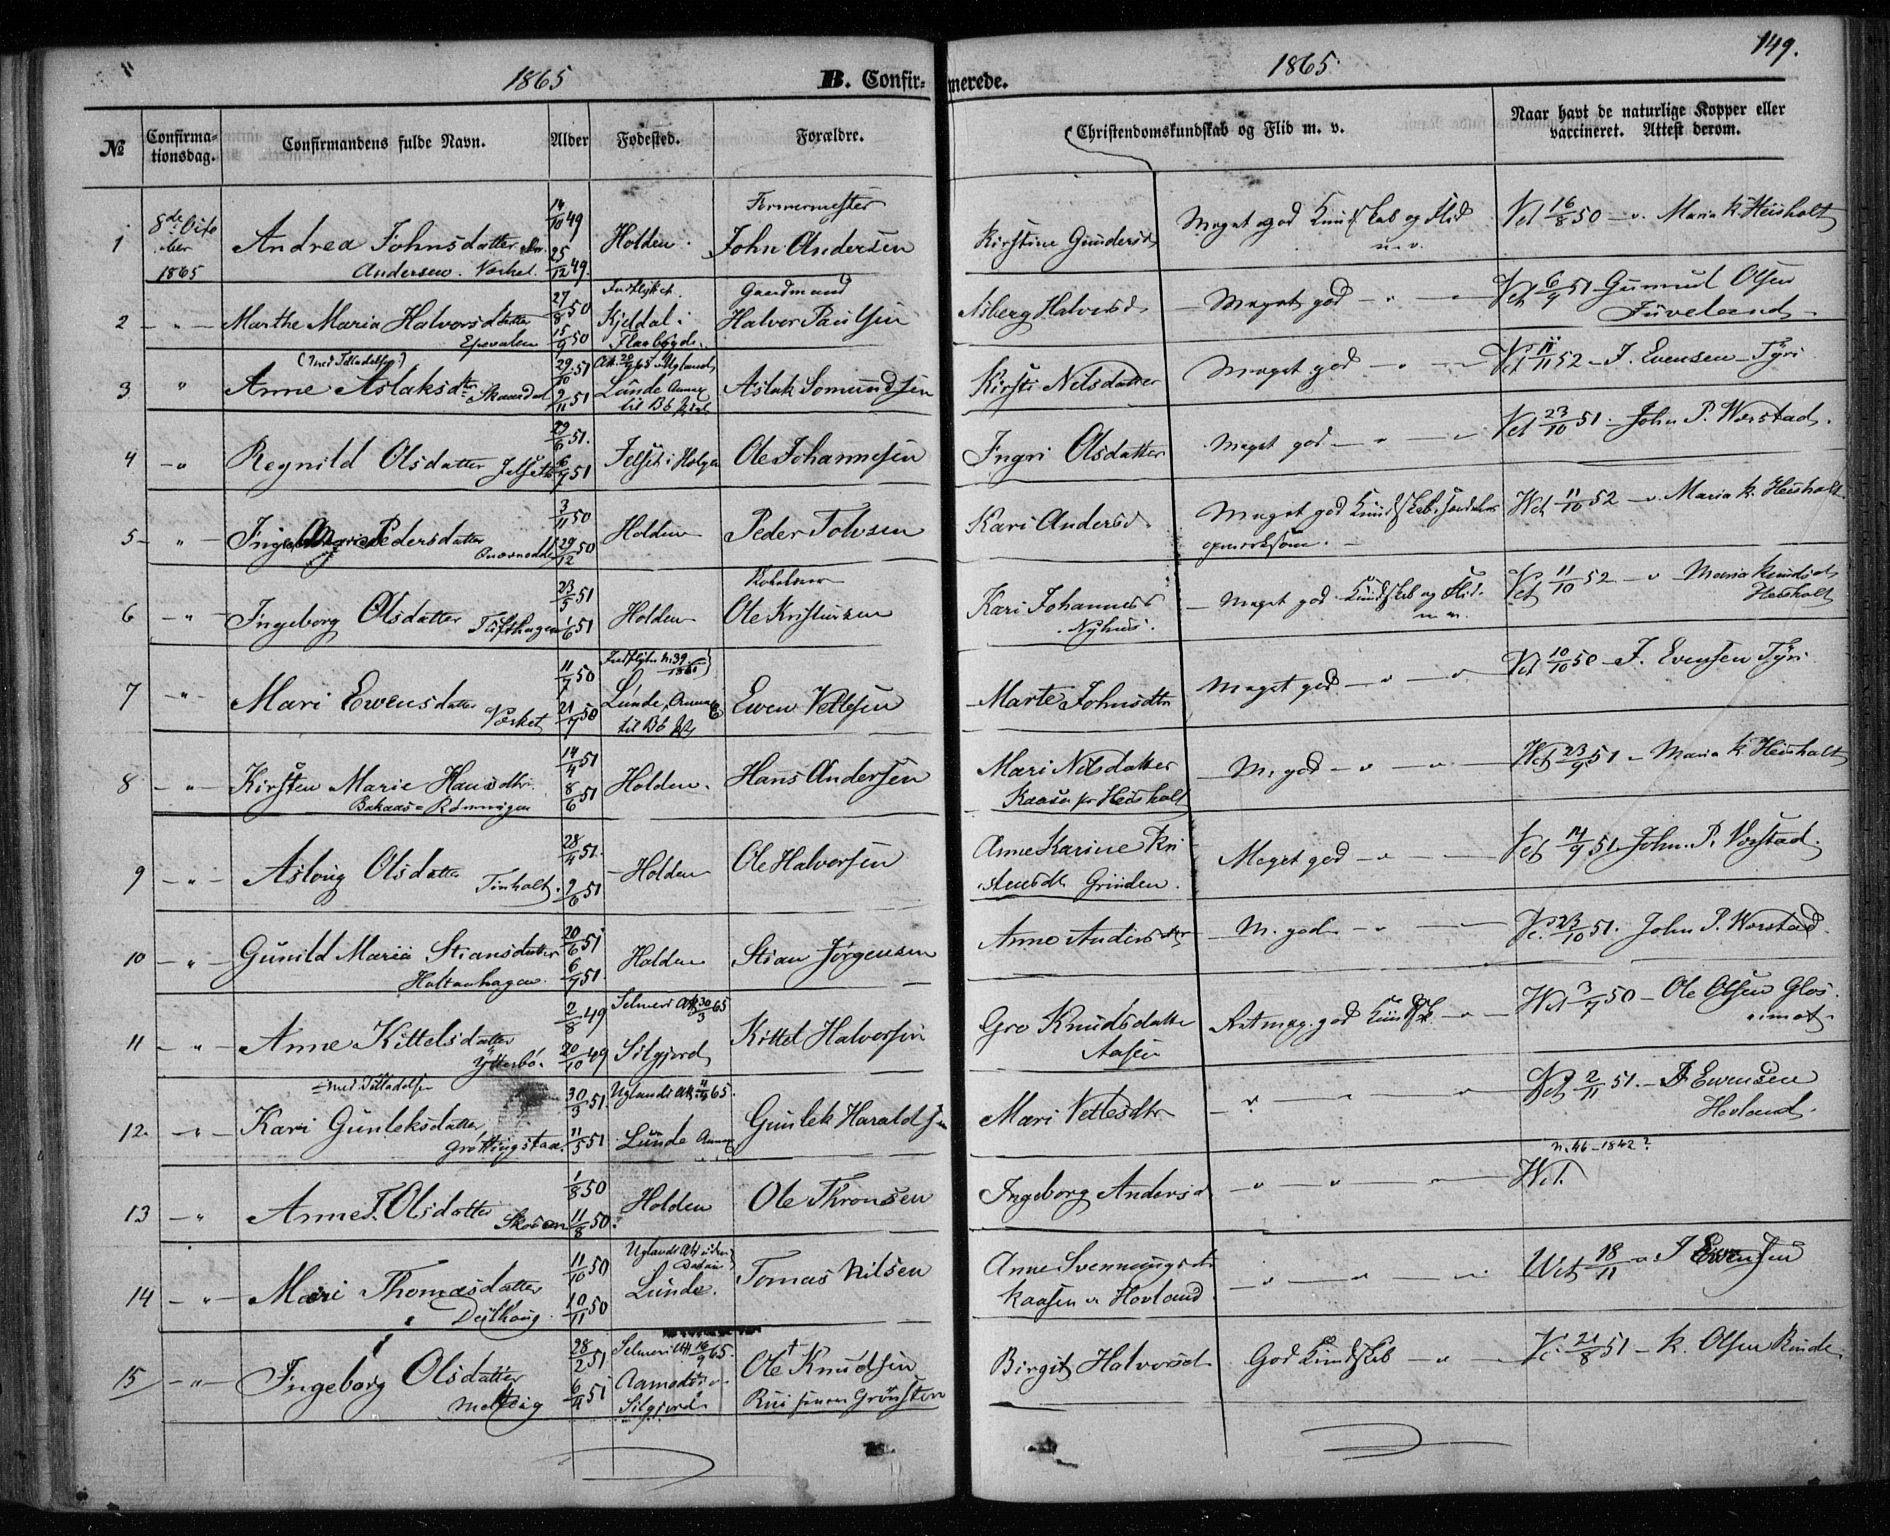 149.
1865
B. Confirmerede.
1865
№
Confirmationsdag.
Confirmandens fulde Navn.
Alder
Fødested.
Forældre.
Christendomskundskab og Flid m. v.
Naar havt de naturlige Kopper eller vaccineret. Attest derom.
1
8de Octo
ber
1865
Andrea Johnsdatter
Andersen
14/10 49
25/12 49.
Holden.
John Andersen
Kirstine Gundersd
Meget god Kundskab og Flid
Vet 16/8 50 - v. Maria K. Heisholt
2 - " -
Marthe Maria Halvorsdatter
27/8 50
15/9 50
Indflyttet
Kjeldal i
Flaabygd.
Gaardmand
Halvor Paulsen
Asberg Halvorsd
Meget god - " - "
Vet 6/9 51 Gunnul Olsen
Juveland
3 "
Anne Aslaksdtr Skaardal
29/10 51
9/11 51
Lunde Annex
til Bö
Aslak Somundsen
Kirsti Nilsdatter
Meget god - " - "
Vet 11/11 52 - J. Evensen Tyri
4 - "
Regnild Olsdatter
29/6 51.
6/7 51
Ole Johannesen
Ingri Olsdatter
Meget god - " - "
Vet 23/10 51. John P. Vorstad.
5 - " -
Pedersdatter
3/11 50
29/12 50
Holden
Peder Tovsen
Kari Andersd
Meget god Kundskab
opmerksom.
Vet 11/10 52 - v. Maria K. Heisholt
6 - " -
Ingeborg Olsdatter
Tufthagen
23/5 51
1/6 51
Holden
Ole Kristensen
Kari Johannesd
Nyhus.
Meget god Kundskab og Flid.
Vet 11/10 52 - v Maria Knudsd
Heisholt
7 - " -
Mari Ewensdatter
Versket
11/7 50
21/7 50
Lunde, Annex
til Bö
Ewen Vetlesen
Marte Johnsdtr
Meget god - " - "
Vet 10/10 50 - J. Evensen Tyri
8 - " -
Kirsten Marie Hansdtr.
Bakaas = Rönningen
14/4 51
8/6 51
Holden.
Hans Andersen
Mari Nilsdatter
Kaasa pr Heisholt
M. god - " - "
Vet 23/9 51 - Maria K. Heisholt
9 - " -
Asloug Olsdatter
Tinholt.
28/4 51.
2/6 51
Holden
Ole Halvorsen
Anne Karine Kri
stensdtr Grinden.
Meget god - " -
Vet 14/9 51 John. P. Vorstad.
10 - " -
Gunild Maria Stiansdatter
Holtanhagen.
20/6 51
6/7 51.
Holden
Stian Jörgensen
Anne Andersdtr
M. god - " -
Vc. 23/10 51. John P. Worstad.
11 - " -
Anne Kittelsdatter
Ytterbö.
2/8 49
20/10 49
Selmer Att 30/3 65
Silgjord
Kittel Halvorsen
Gro Knudsdatter
Aasen
Ret meg. god Kundsk. - "
Vet 3/7 50 - Ole Olsen Glos
imot
12. - " -
med Tilladelse
Kari Gunleksdatter
Gröttingstaa.
30/3 51.
11/5 51
Uglands Att 4/4 65.
Lunde Annex
Gunlek Haraldsen
Mari Vetlesdtr
- " - " - "
Vet 2/11 51. - J Ewensen
Hovland.
13 - "
Anne T. Olsdatter
Skoaen
1/8 50
11/8 50.
Holden
Ole Thronsen
Ingeborg Andersd
- " - " - "
n. 46 - 1842?
Vet.
14 - " -
Mari Thomasdatter
11/10 50
10/11 50
Lunde.
Tomas Nilsen
Anne Svenningsdtr
Kaasen v Hovland.
- " - " - "
Vet 18/11 " J Ewensen
15 - " -
Ingeborg Olsdatter
28/2 51
6/4 51
Selmers Att 16/9 65.
Silgjord
Ole Knudsen
Birgit Halvorsd
God Kundskab - " -
Vc. 21/8 51 - K. Olsen Rinde